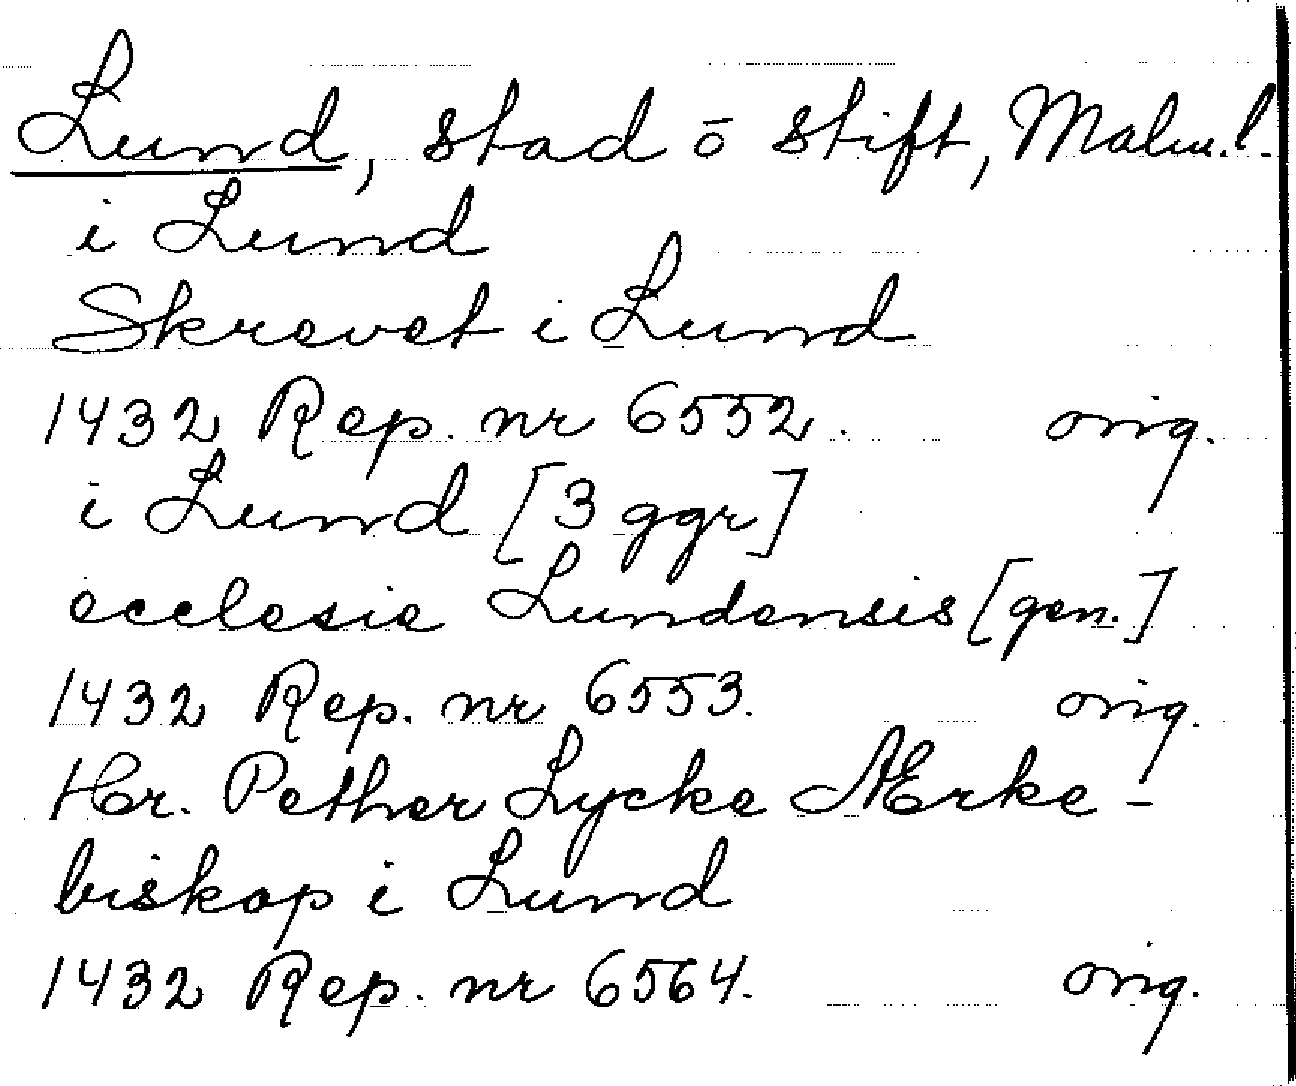 Lund, stad ō stift, Malm.l.
i Lund
Skrevet i Lund
1432 Rep. nr 6552. orig.
i Lund [3 ggr]
ecclesie Lundensis [gen.]
1432 Rep. nr 6553. orig.
Hr. Pether Lycke Ærke-
biskop i Lund
1432 Rep. nr 6564. orig.